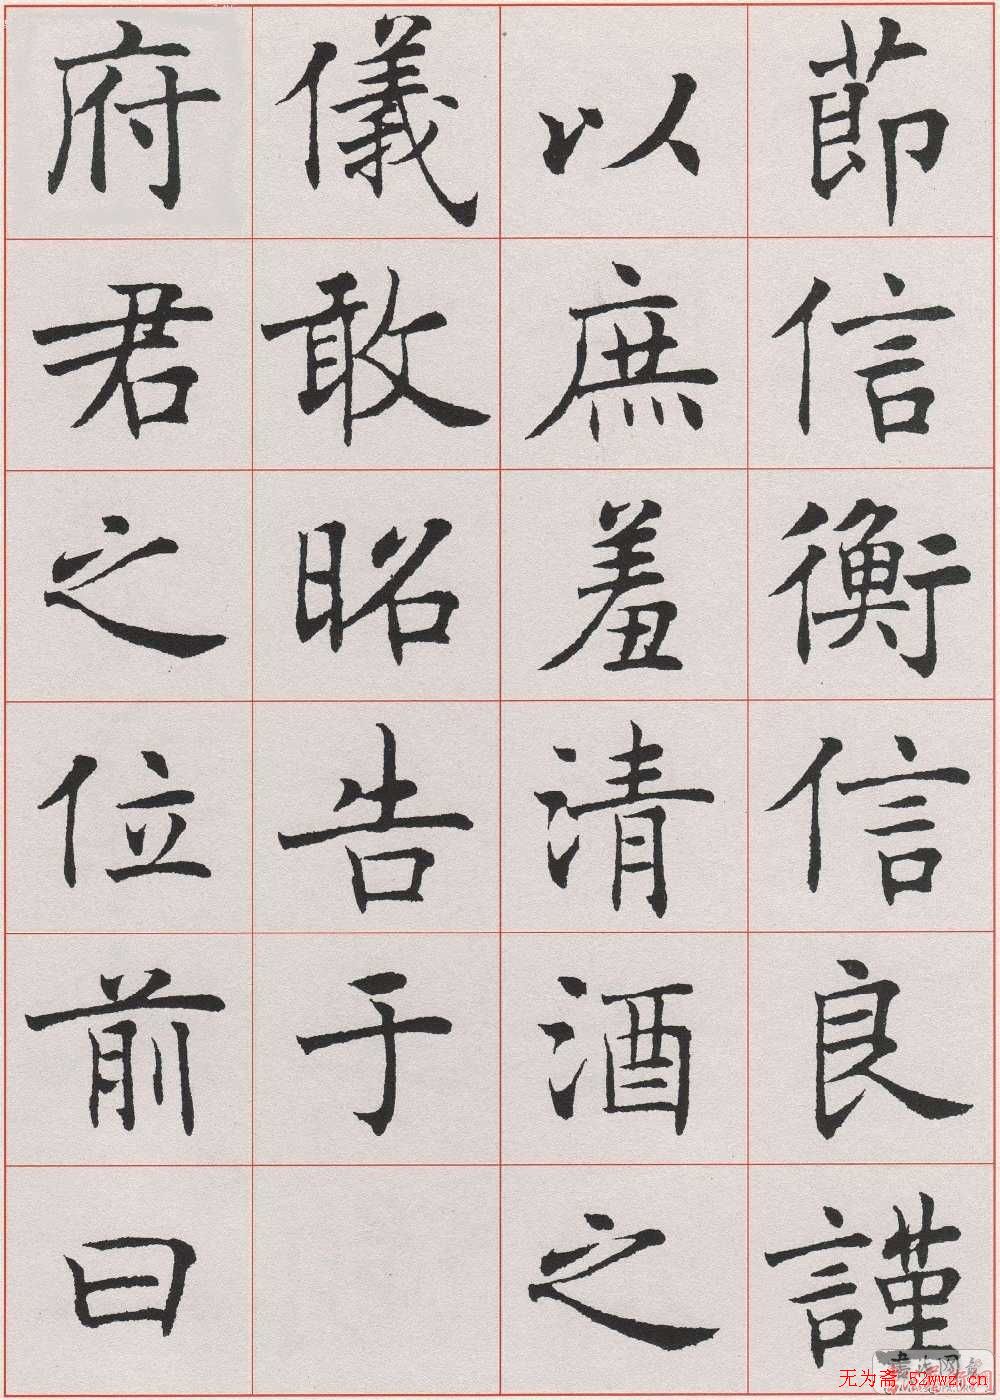 節信衡信良謹
以庶羞清酒之
儀敢昭告于
府君之位前曰
无为斋 52wwz.cn